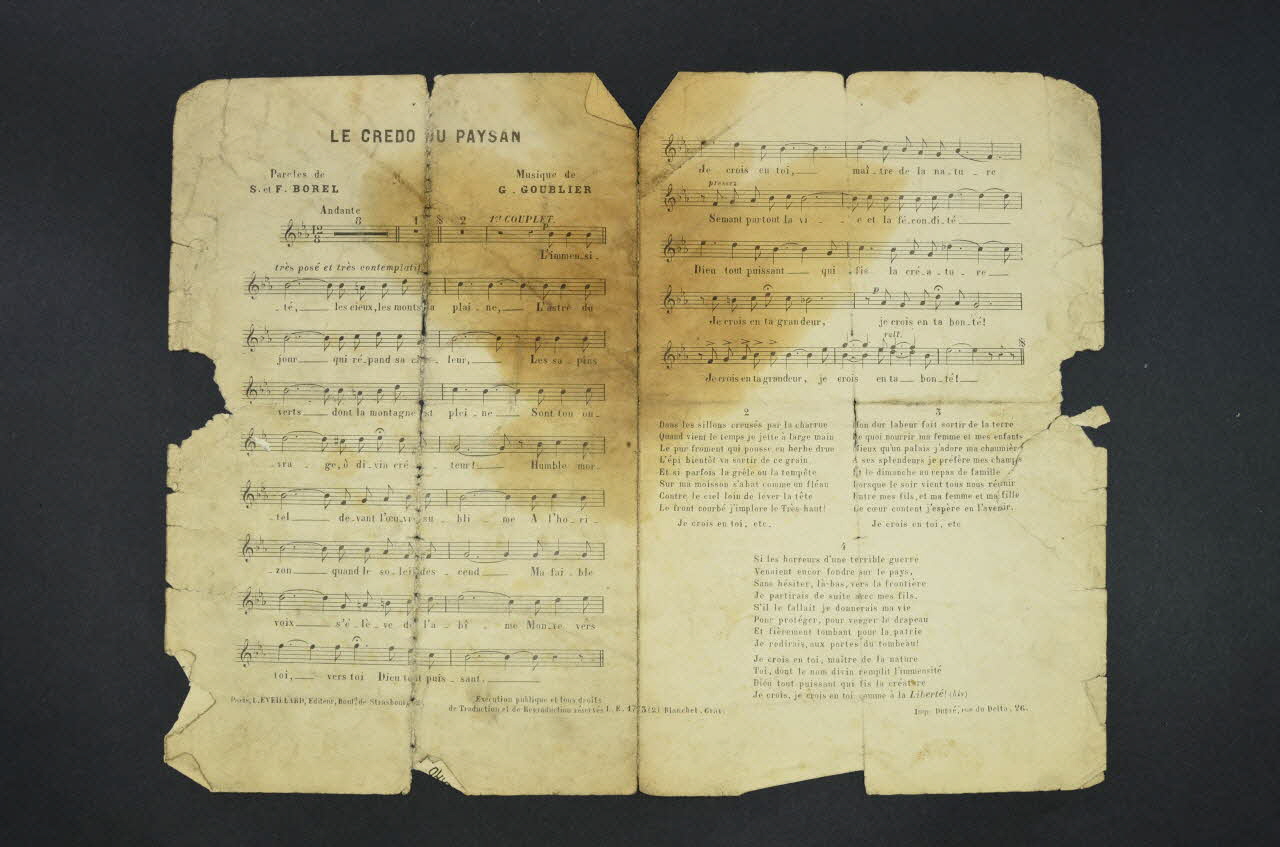 LE CREDO DU PAYSAN
Paroles de
S. et F. BOREL
Musique de
G. GOUBLIER
Andante
8 1 2 1er COUPLET.
p
L'immen_si_
très posé et très contemplatif
_té,____ les cieux, les monts la plai_ne,____ L'astre du
jour____ qui ré_pand sa cha_leur,____ Les sa_pins
verts____ dont la montagne est plei_ne____ Sont ton ou_
_vra_ge, ô di_vin cré_a_teur!____ Humble mor_
_tel____ de_vant l'œuvre su_bli_me A l'ho_ri_
_zon____ quand le so_leil des_cend____ Ma fai_ble
voix____ s'é_lè_ve de l'a_bî_me Monte vers
toi,____ vers toi Dieu tout puis_sant.____
Paris, L. EVEILLARD, Editeur, Boul.d de Strasbourg,
Exécution publique et tous droits
de Traduction et de Reproduction réservés L. E. 1773 (2) Blanchet, Grav.
Je crois en toi,____ maî_tre de la na_tu_re
pressez
Semant partout la vi__e et la fé_con_di_té____
Dieu tout puissant____ qui fis la cré_a_tu_re____
p
Je crois en ta grandeur, je crois en ta bon_té!
rall.
Je crois en ta grandeur, je crois en ta____ bon_té!____
2
Dans les sillons creusés par la charrue
Quand vient le temps je jette à large main
Le pur froment qui pousse en herbe drue
L'épi bientôt va sortir de ce grain
Et si parfois la grêle ou la tempête
Sur ma moisson s'abat comme un fléau
Contre le ciel loin de lever la tête
Le front courbé j'implore le Très-haut!
Je crois en toi, etc.
3
Mon dur labeur fait sortir de la terre
De quoi nourrir ma femme et mes enfants
Mieux qu'un palais j'adore ma chaumière
A ses splendeurs je préfère mes champs
Et le dimanche au repas de famille
Lorsque le soir vient tous nous réunir
Entre mes fils, et ma femme et ma fille
Le cœur content j'espère en l'avenir.
Je crois en toi, etc
4
Si les horreurs d'une terrible guerre
Venaient encor fondre sur le pays,
Sans hésiter, là-bas, vers la frontière
Je partirais de suite avec mes fils.
S'il le fallait je donnerais ma vie
Pour protéger, pour venger le drapeau
Et fièrement tombant pour la patrie
Je redirais, aux portes du tombeau!
Je crois en toi, maître de la nature
Toi, dont le nom divin remplit l'immensité
Dieu tout puissant qui fis la créature
Je crois, je crois en toi comme à la Liberté! (bis)
Imp. Dupré, rue du Delta, 26.